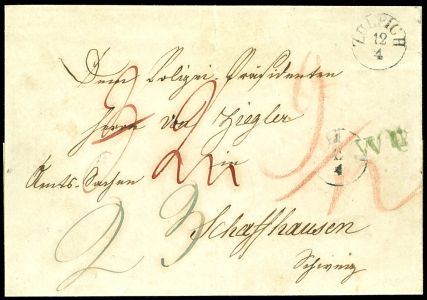 ZULPICH
12
4
Dem Polizei Präsidenten
Herrn von Ziegler
in
Amts-Sachen
Schaffhausen
Schweiz
2 3